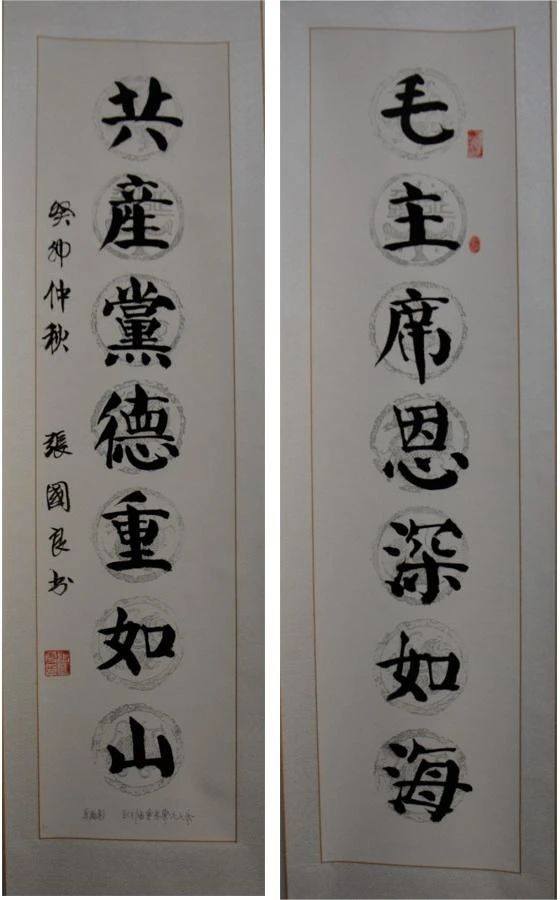 毛主席恩深如海
共産黨德重如山
癸卯仲秋 張國良书